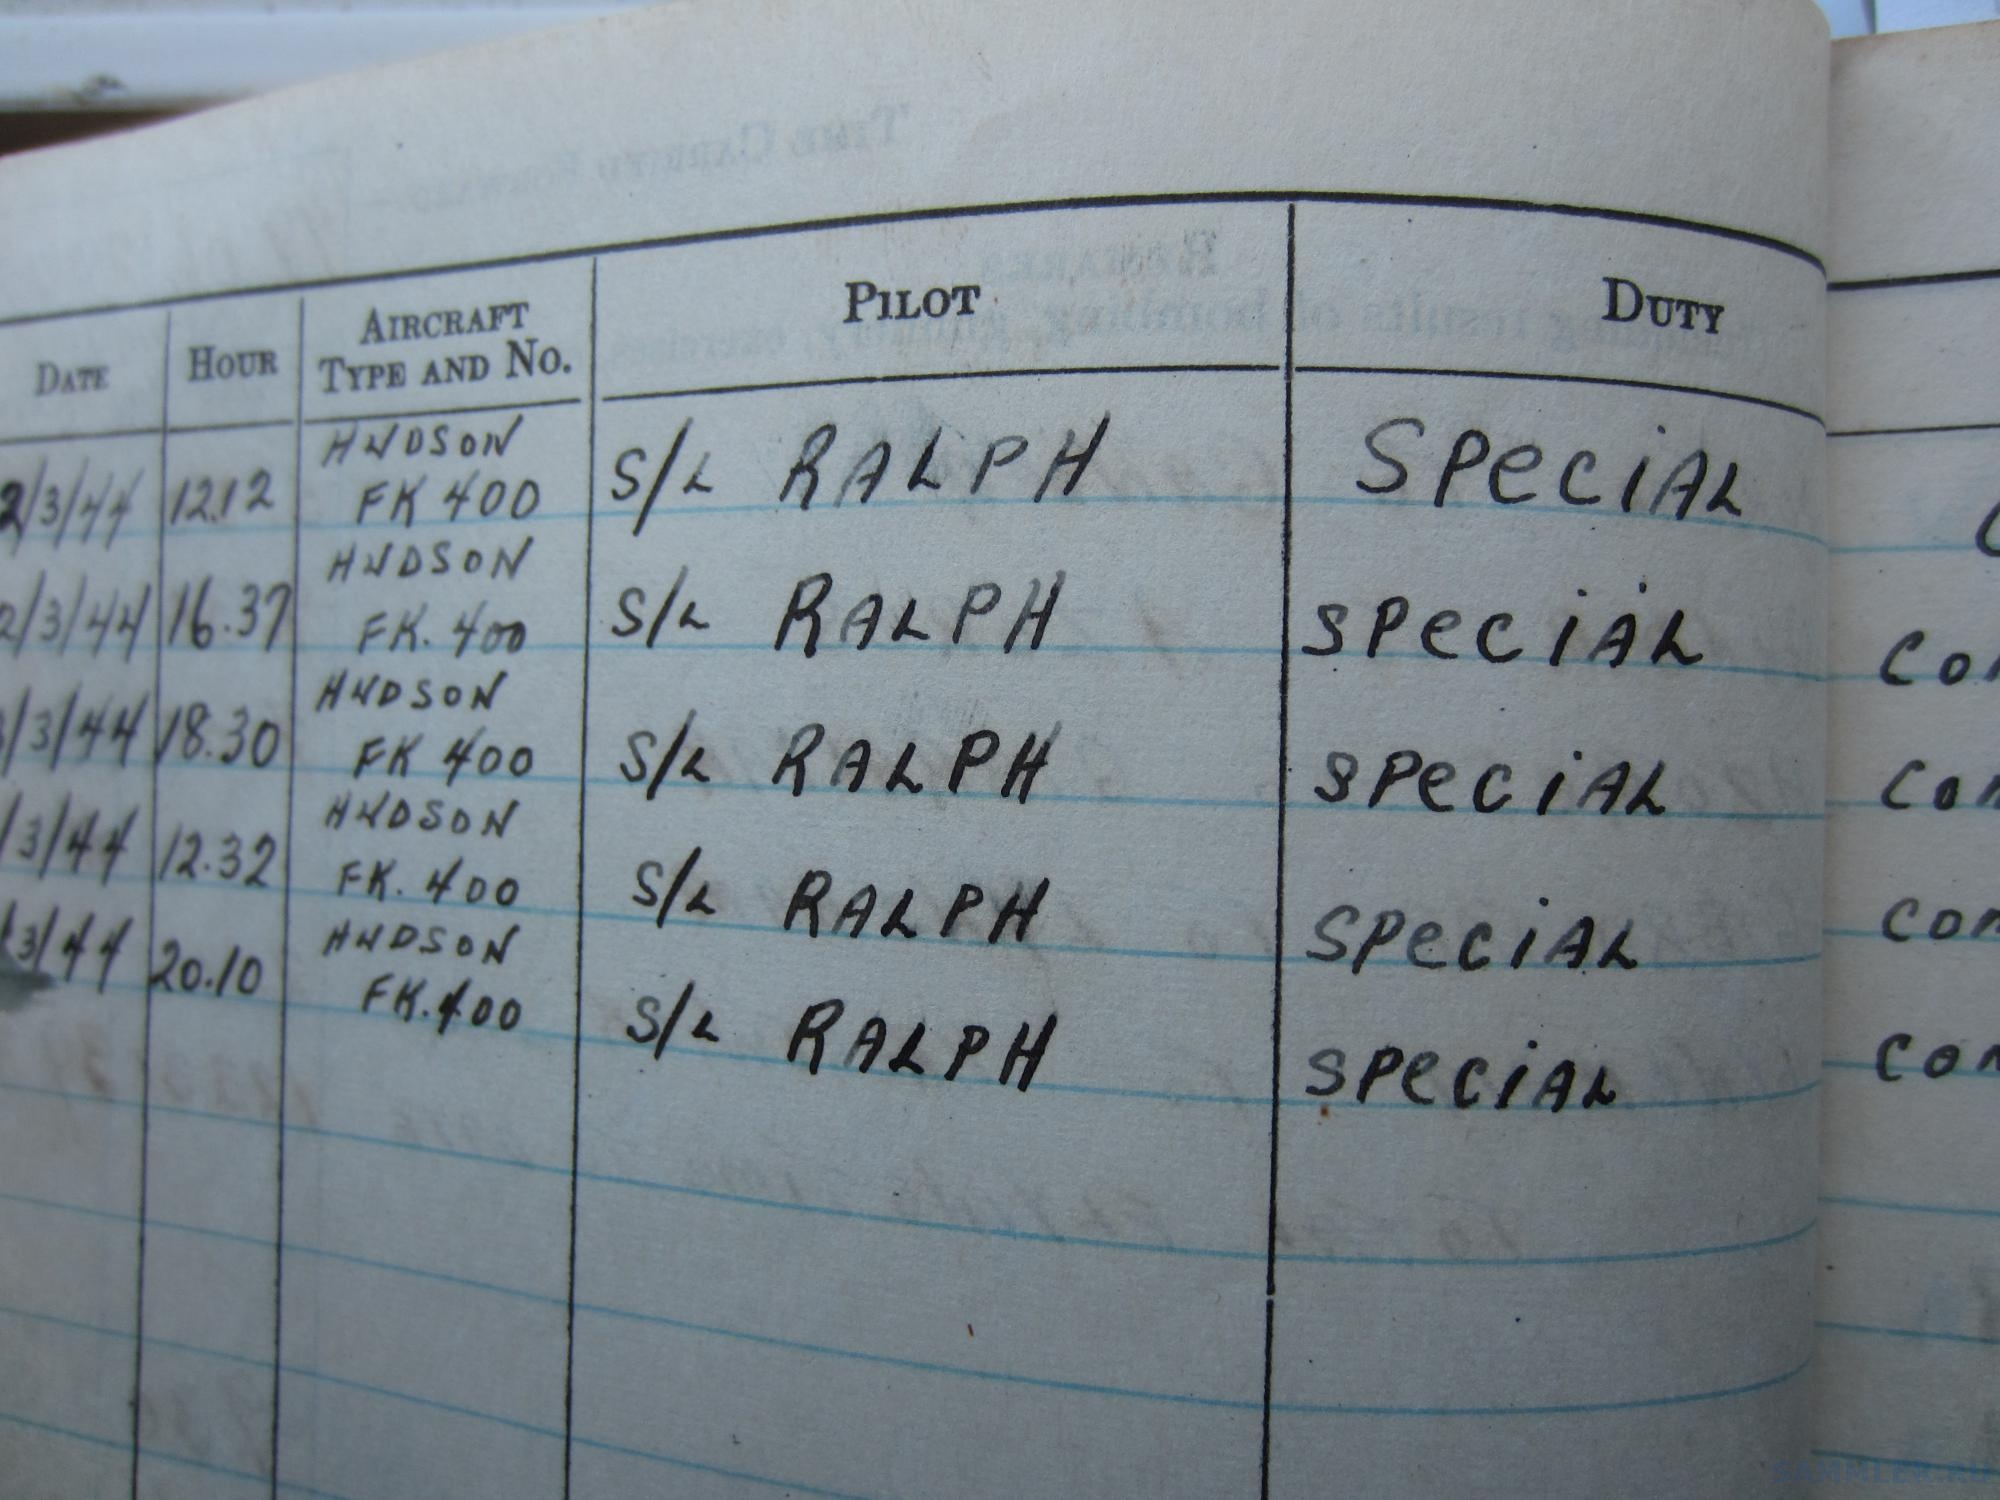 DATE HOUR AIRCRAFT TYPE AND NO. PILOT DUTY
2/3/44 12.12 HUDSON FK 400 S/L RALPH SPECIAL
2/3/44 16.37 HUDSON FK. 400 S/L RALPH SPECIAL
/3/44 18.30 HUDSON FK 400 S/L RALPH SPECIAL
/3/44 12.32 HUDSON FK. 400 S/L RALPH SPECIAL
3/44 20.10 HUDSON FK. 400 S/L RALPH SPECIAL